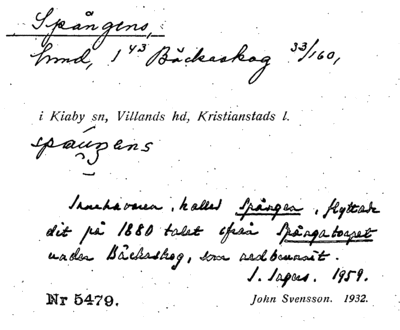 Spångens,
hmd, 1 43 Bäckaskog 33/160,
i Kiaby sn, Villands hd, Kristianstads l.
spåŋens
Innehavaren, kallad Spången, flyttade
dit på 1880 talet ifrån Spångatorpet
under Bäckaskog, som nedbrunnit.
I. Ingers. 1959.
Nr 5479.
John Svensson. 1932.